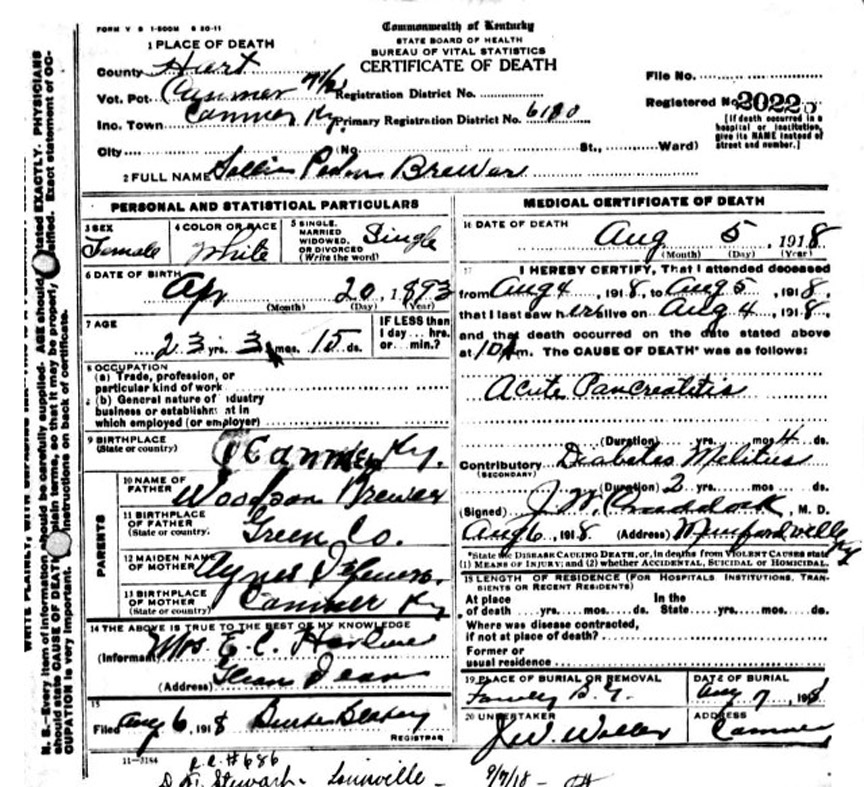 FORM V S 1-500M 5 20-11
Commonwealth of Kentucky
STATE BOARD OF HEALTH
BUREAU OF VITAL STATISTICS
CERTIFICATE OF DEATH
1 PLACE OF DEATH
County Hart
Vot. Pct. Canmer Registration District No.
Inc. Town Canmer Ky. Primary Registration District No. 6180
City (No. St., Ward)
File No.
Registered No. 2022
[If death occurred in a hospital or institution, give its NAME instead of street and number.]
2 FULL NAME Sallie Brewer
PERSONAL AND STATISTICAL PARTICULARS
3 SEX Female
4 COLOR OR RACE White
5 SINGLE, MARRIED WIDOWED, OR DIVORCED (Write the word) Single
6 DATE OF BIRTH
Apr 20, 1893
(Month) (Day) (Year)
7 AGE
23 yrs. 3 mos. 15 ds.
IF LESS than 1 day... hrs. or... min.?
8 OCCUPATION
(a) Trade, profession, or
particular kind of work
(b) General nature of industry
business or establishment in
which employed (or employer)
9 BIRTHPLACE
(State or country) Canmer Ky.
PARENTS
10 NAME OF FATHER Woodson Brewer
11 BIRTHPLACE OF FATHER (State or country) Green Co.
12 MAIDEN NAME OF MOTHER Agnes
13 BIRTHPLACE OF MOTHER (State or country) Canmer Ky
14 THE ABOVE IS TRUE TO THE BEST OF MY KNOWLEDGE
(Informant) Mrs. E. C.
(Address) Glean Dean
15
Filed Aug 6, 1918
REGISTRAR
MEDICAL CERTIFICATE OF DEATH
16 DATE OF DEATH
Aug 5, 1918
(Month) (Day) (Year)
17 I HEREBY CERTIFY, That I attended deceased
from Aug 4, 1918, to Aug 5, 1918,
that I last saw her alive on Aug 4, 1918,
and that death occurred on the date stated above
at 10 Am. The CAUSE OF DEATH* was as follows:
Acute Pancreatitis
(Duration) yrs. mos. 4 ds.
Contributory Diabetes Melitus
(SECONDARY)
(Duration) 2 yrs. mos. ds.
(Signed) J. W. Craddock, M. D.
Aug 6, 1918. (Address) Munfordville Ky
*State the DISEASE CAUSING DEATH, or, in deaths from VIOLENT CAUSES state
(1) MEANS OF INJURY; and (2) whether ACCIDENTAL, SUICIDAL or HOMICIDAL.
18 LENGTH OF RESIDENCE (FOR HOSPITALS, INSTITUTIONS, TRANSIENTS OR RECENT RESIDENTS)
At place of death yrs. mos. ds. In the State yrs. mos. ds.
Where was disease contracted,
if not at place of death?
Former or
usual residence
19 PLACE OF BURIAL OR REMOVAL
Family B. G.
DATE OF BURIAL
Aug 7, 1918
20 UNDERTAKER
J. W. Waller
ADDRESS
Canmer
11-3184
R.C. #686
Stewart - Louisville - 9/7/18 -
N. B.—Every item of information should be carefully supplied. AGE should be stated EXACTLY. PHYSICIANS
should state CAUSE OF DEATH in plain terms, so that it may be properly classified. Exact statement of OC-
CUPATION is very important. Instructions on back of certificate.